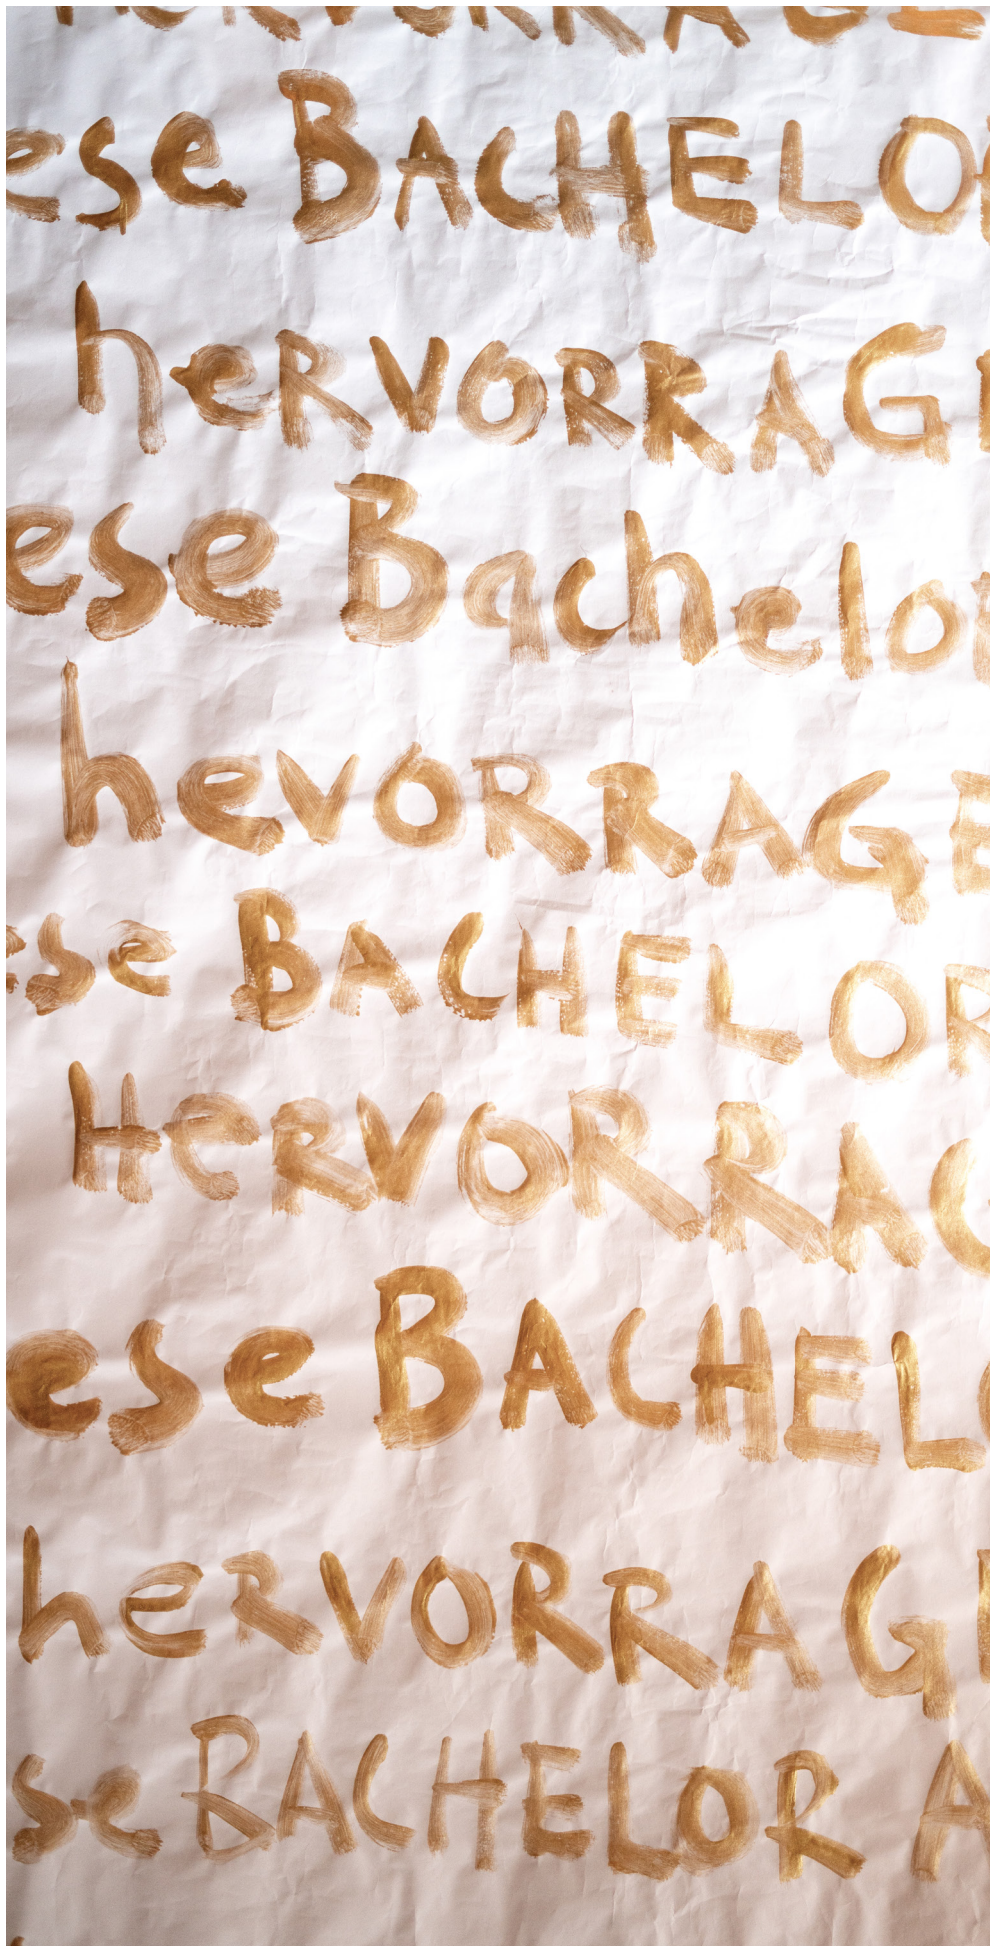 HERVORRAGE
ese BACHELO
heRVORRAG
ese Bachelo
hevORRAGE
se BACHELOR
HeRVORRAG
ese BACHELO
heRVORRAG
se BACHELOR A